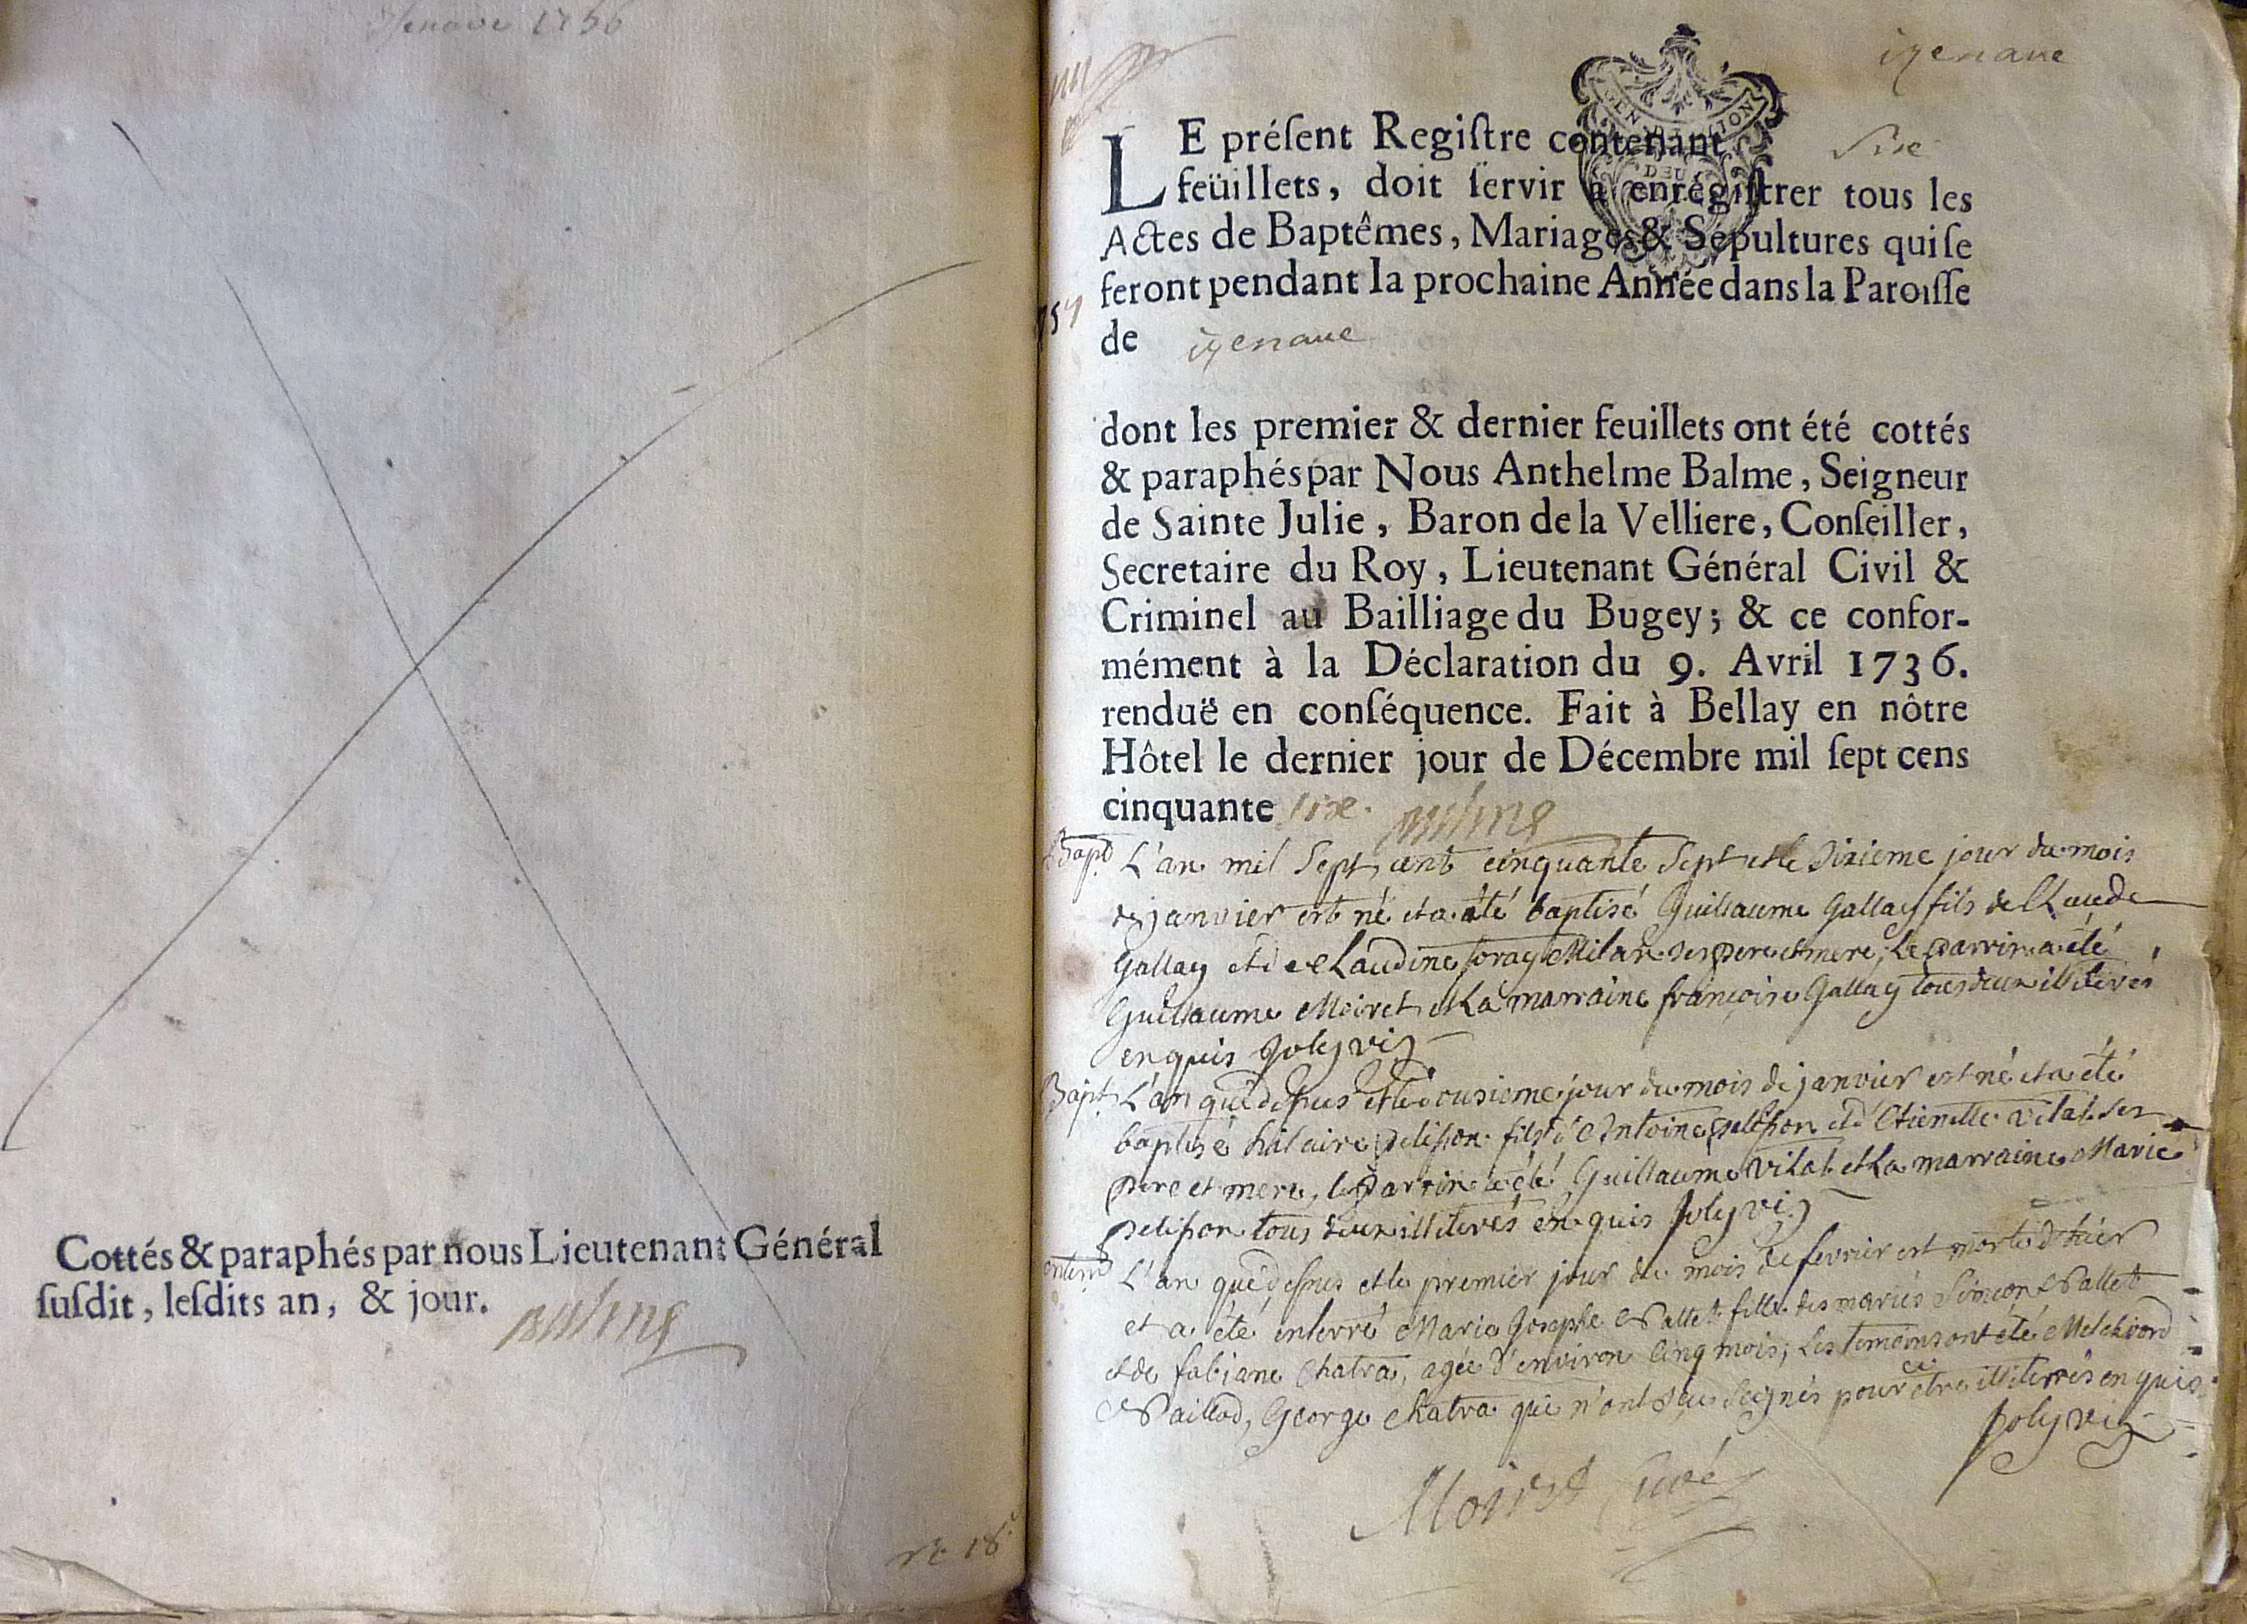 1756
Cottés & paraphés par nous Lieutenant Général
ſuſdit, leſdits an, & jour.
Balme
igenave
LE préſent Regiſtre contenant Sixe
feüillets, doit ſervir à enrégiſtrer tous les
Actes de Baptêmes, Mariages & Sépultures qui ſe
feront pendant la prochaine Année dans la Paroiſſe
de igenave
dont les premier & dernier feuillets ont été cottés
& paraphés par Nous Anthelme Balme, Seigneur
de Sainte Julie, Baron de la Velliere, Conſeiller,
Secretaire du Roy, Lieutenant Général Civil &
Criminel au Bailliage du Bugey; & ce confor-
mément à la Déclaration du 9. Avril 1736.
renduë en conſéquence. Fait à Bellay en nôtre
Hôtel le dernier jour de Décembre mil ſept cens
cinquante sixe. Balme
Bapt. L'an mil Sept cent cinquante Sept et le Sixieme jour du mois
de janvier est né et a été baptisé Guillaume Gallay fils de Claude
Gallay et de Claudine Milan Ses pere et mere, Le parrin a été
Guillaume Moiret et La marraine françoise Gallay tous deux illiterés
enquis Joly vic
Bapt. L'an que dessus et le jour du mois de janvier est né et a été
baptisé hilaire pelisson fils d'Antoine pelisson et d'Etienette vilat Ses
pere et mere, le parrin a été Guillaume vilat et La marraine Marie
pelisson tous deux illiterés enquis Joly vic
enterr. L'an que dessus et le premier jour du mois de fevrier est morte d'hier
et a été enterré Marie Josephe Pallet fille des mariés Simeon Pallet
et de fabiane Chatra, agée d'environ Cinq mois, Les temoins ont été Melchiord
Paillod, George Chatra qui n'ont Signés pour etre illiterés enquis
Joly vic
Moiret Curé